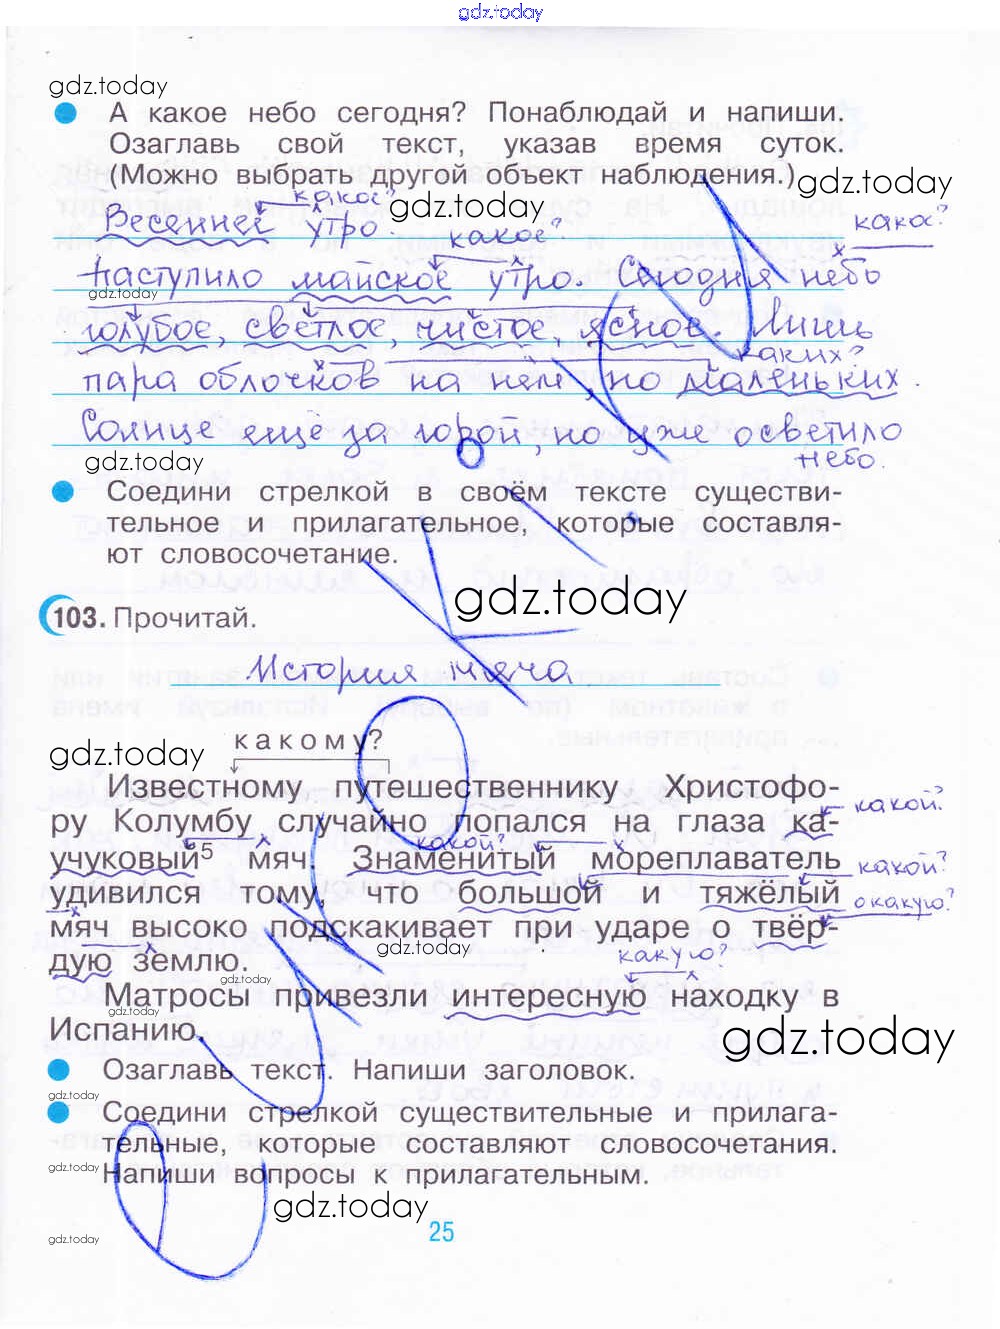 gdz.today
gdz.today
А какое небо сегодня? Понаблюдай и напиши.
Озаглавь свой текст, указав время суток.
(Можно выбрать другой объект наблюдения.) gdz.today
какое? gdz.today
Весеннее утро какое? какое?
Наступило майское утро. Сегодня небо
gdz.today
голубое, светлое, чистое, ясное. Лишь
каких?
пара облочков на нём, но маленьких.
Солнце ещё за горой, но уже осветило
gdz.today небо.
Соедини стрелкой в своём тексте существи-
тельное и прилагательное, которые составля-
ют словосочетание.
gdz.today
103. Прочитай.
История мяча
gdz.today какому?
Известному путешественнику Христофо-
ру Колумбу случайно попался на глаза ка- какой?
какой?
учуковый5 мяч. Знаменитый мореплаватель какой?
удивился тому, что большой и тяжёлый окакую?
мяч высоко подскакивает при ударе о твёр-
gdz.today
дую землю. какую?
gdz.today
Матросы привезли интересную находку в
gdz.today
Испанию. gdz.today
Озаглавь текст. Напиши заголовок.
gdz.today
Соедини стрелкой существительные и прилага-
тельные, которые составляют словосочетания.
gdz.today
Напиши вопросы к прилагательным.
gdz.today
25
gdz.today